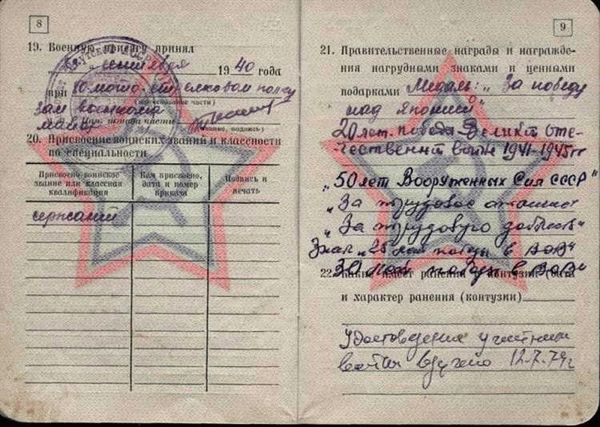 8
19. Военную присягу принял
сентября 1940 года
при 10 мото-стрелковом полку
(наименование части)
Зам военкома
Нач. штаба части
(звание, подпись)
20. Присвоение воинских званий и классности
по специальности
Присвоено воинское звание или классная квалификация
Кем присвоено, дата и номер приказа
Подпись и печать
сержант
9
21. Правительственные награды и награжде-
ния нагрудными знаками и ценными
подарками Медаль: „За победу
над Японией"
20 лет победы Великой Оте-
чественной войне 1941-1945гг
„50 лет Вооруженных Сил СССР"
„За трудовое отличие"
„За трудовую доблесть"
Знак „25 лет победы в ВОВ"
30 лет победы в ВОВ"
22. Какие имеет ранения и контузии (дата
и характер ранения (контузии)
Удостоверение участника
войны вручено 12.7.79г